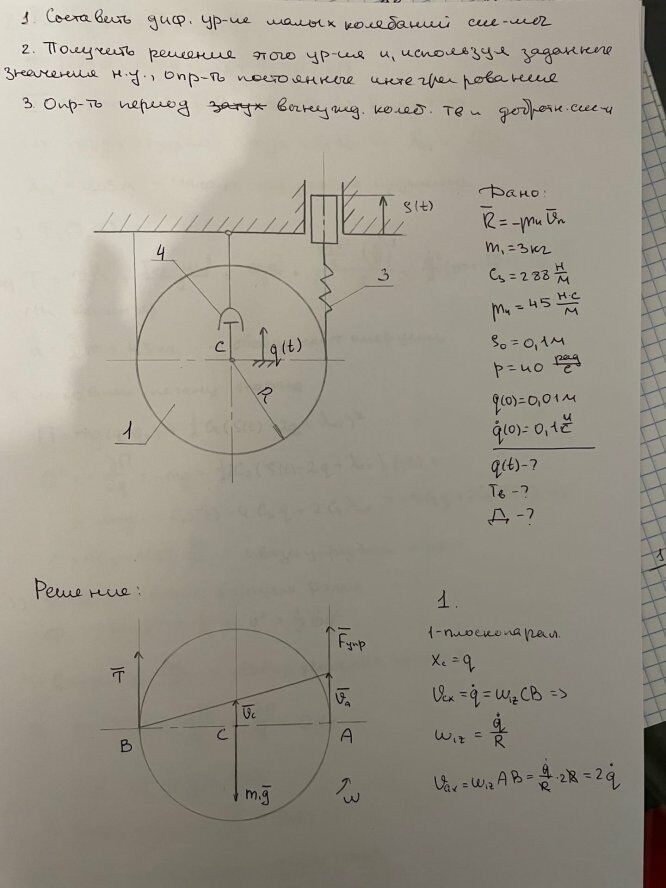 1. Составить диф. ур-ие малых колебаний сис-мы
2. Получить решение этого ур-ия и, используя заданные
значения н.у., опр-ть постоянные интегрирования
3. Опр-ть период затух вынужд. колеб. Tв и добротн. сис-ы
Дано:
R̅ = -μ₄ V̅п
m₁ = 3 кг
C₃ = 288 Н/м
μ₄ = 45 Н·с/м
S₀ = 0,1 м
p = 40 рад/с
q(0) = 0,01 м
q̇(0) = 0,1 м/с
q(t) - ?
Tв - ?
Д - ?
S(t)
4
3
C
q(t)
R
1
Решение:
1.
1-плоскопарал.
Xc = q
Vcx = q̇ = ω₁z CB =>
ω₁z = q̇/R
Vax = ω₁z AB = q̇/R · 2R = 2q̇
T̅
F̅упр
V̅c
V̅a
B
C
A
m₁g̅
ω
1